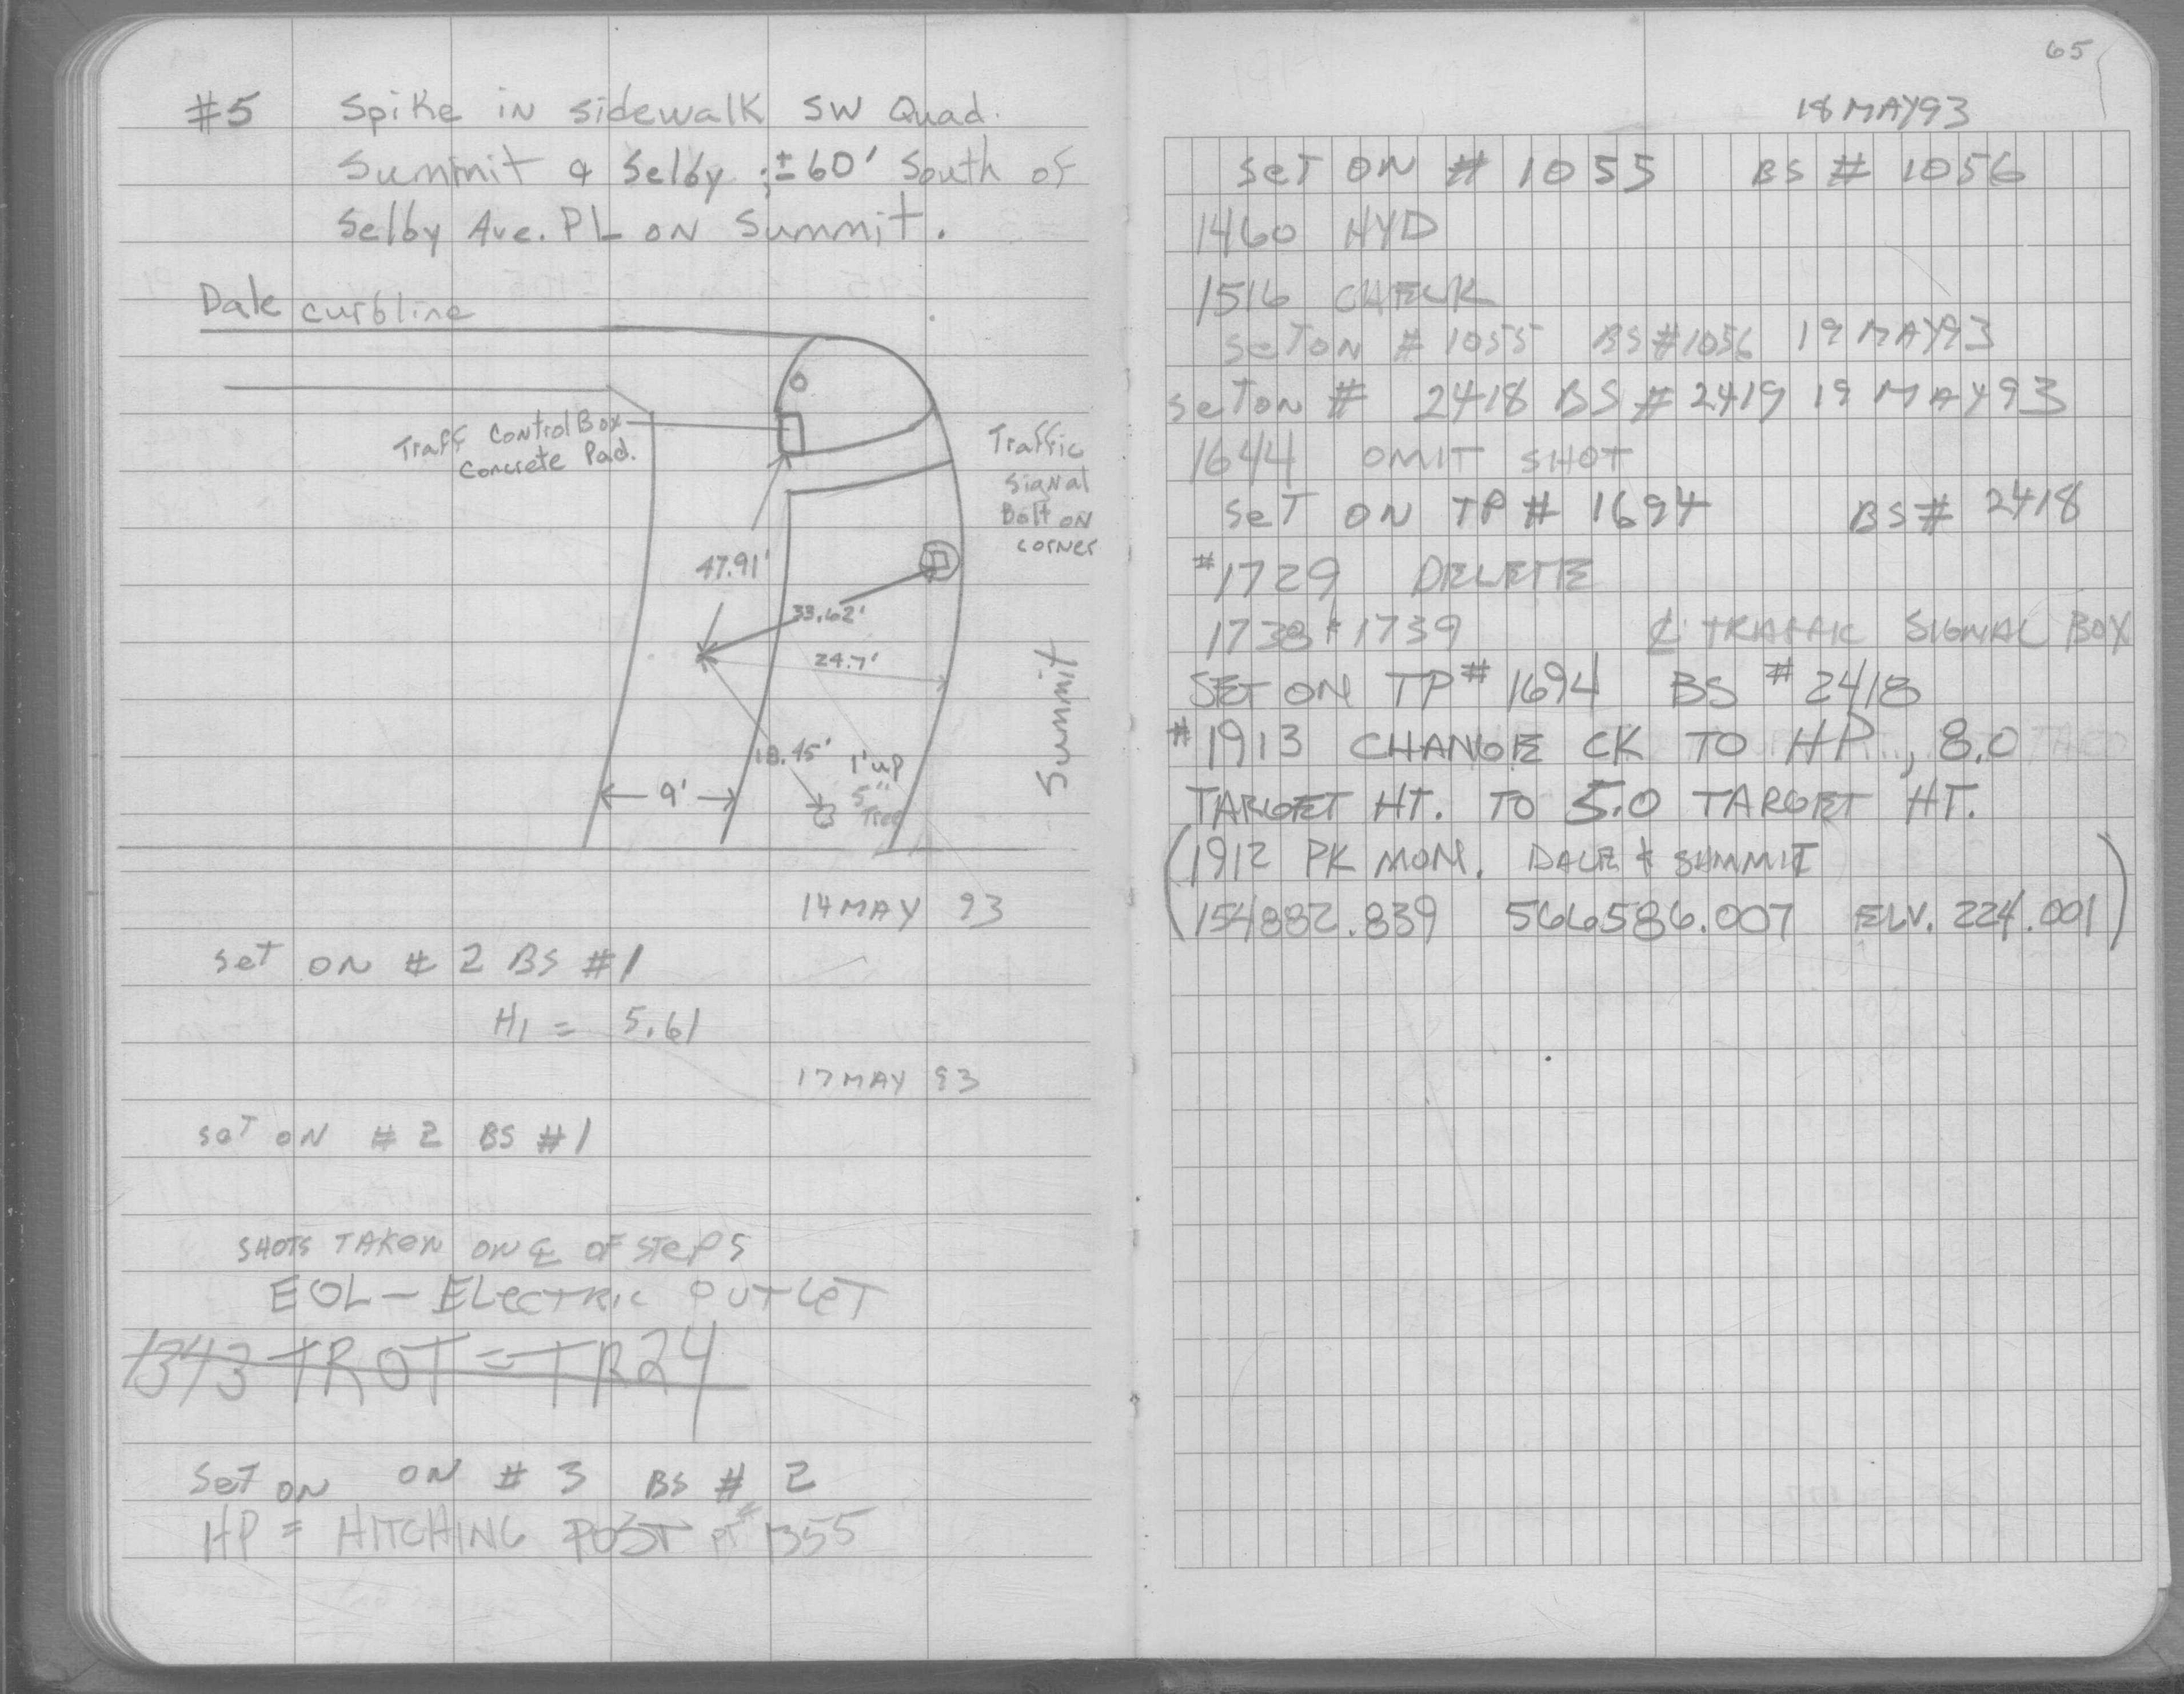 #5 Spike in sidewalk SW Quad.
Summit & Selby ; ±60' South of
Selby Ave. PL ON Summit.
Dale curbline
Traff ControlBox
Concrete Pad.
Traffic
Signal
Bolt ON
corner
47.91'
33.62'
24.7'
18.45'
1' up
5"
Tree
9'
Summit
14 MAY 93
set ON # 2 BS #1
HI = 5.61
17 MAY 93
set ON # 2 BS #1
SHOTS TAKEN ON ℄ OF STEPS
EOL - ELECTRIC OUTLET
1343 TROT = TR24
Set ON ON # 3 BS # 2
HP = HITCHING POST PT # 1355
65
18 MAY 93
SET ON # 1055 BS # 1056
1460 HYD
1516 CHECK
SET ON # 1055 BS #1056 19 MAY 93
SET ON # 2418 BS # 2419 19 MAY 93
1644 OMIT SHOT
SET ON TP # 1694 BS # 2418
#1729 DELETE
1738 & 1739 ℄ TRAFFIC SIGNAL BOX
SET ON TP # 1694 BS # 2418
#1913 CHANGE CK TO HP, 8.0
TARGET HT. TO 5.0 TARGET HT.
(1912 PK MON. DALE & SUMMIT
154882.839 566586.007 ELV. 224.001)